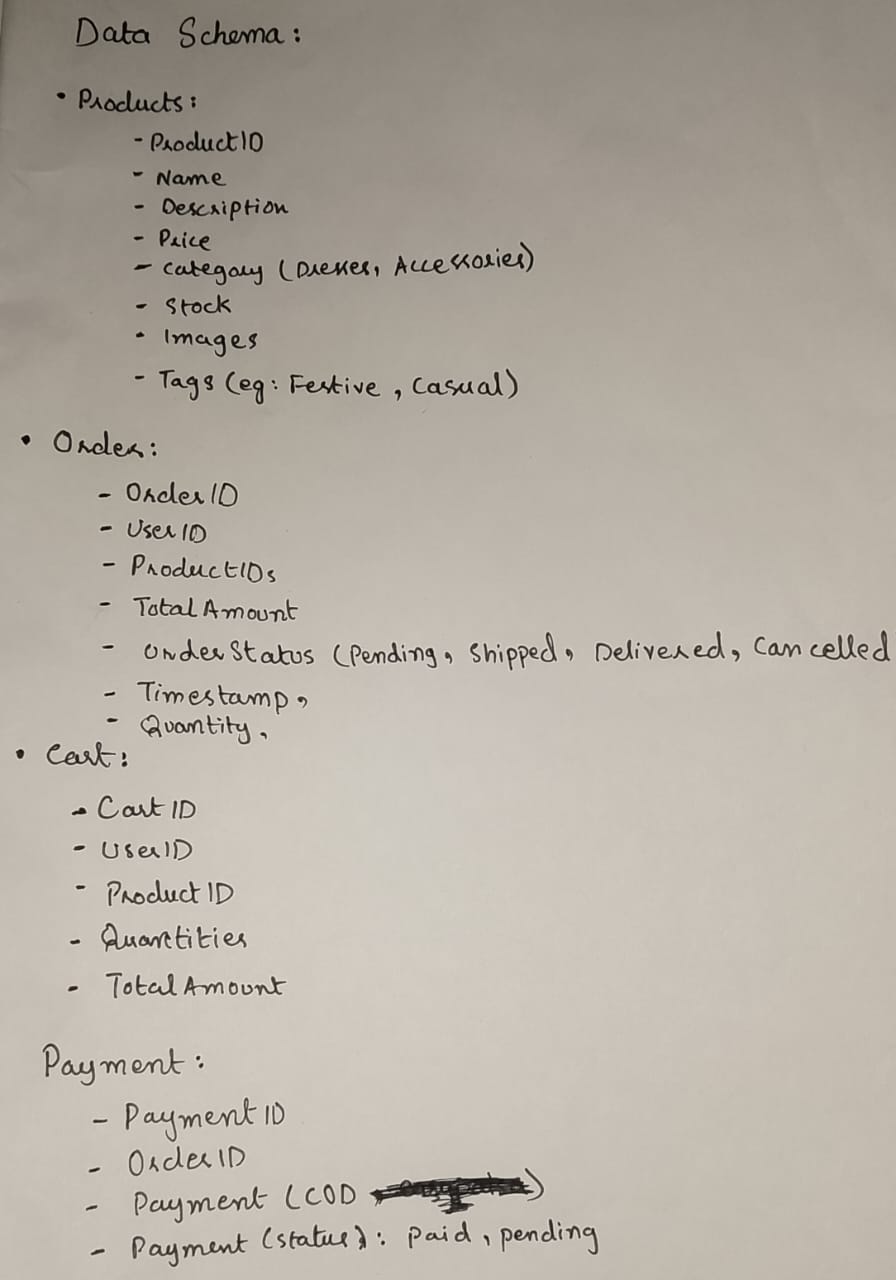 Data Schema:
• Products:
- ProductID
- Name
- Description
- Price
- Category (Dresses, Accessories)
- Stock
- Images
- Tags (eg: Festive, Casual)
• Order:
- OrderID
- UserID
- ProductIDs
- TotalAmount
- OrderStatus (Pending, Shipped, Delivered, Cancelled
- Timestamp,
- Quantity,
• Cart:
- CartID
- UserID
- ProductID
- Quantities
- TotalAmount
Payment:
- PaymentID
- OrderID
- Payment (COD )
- Payment (status): Paid, pending